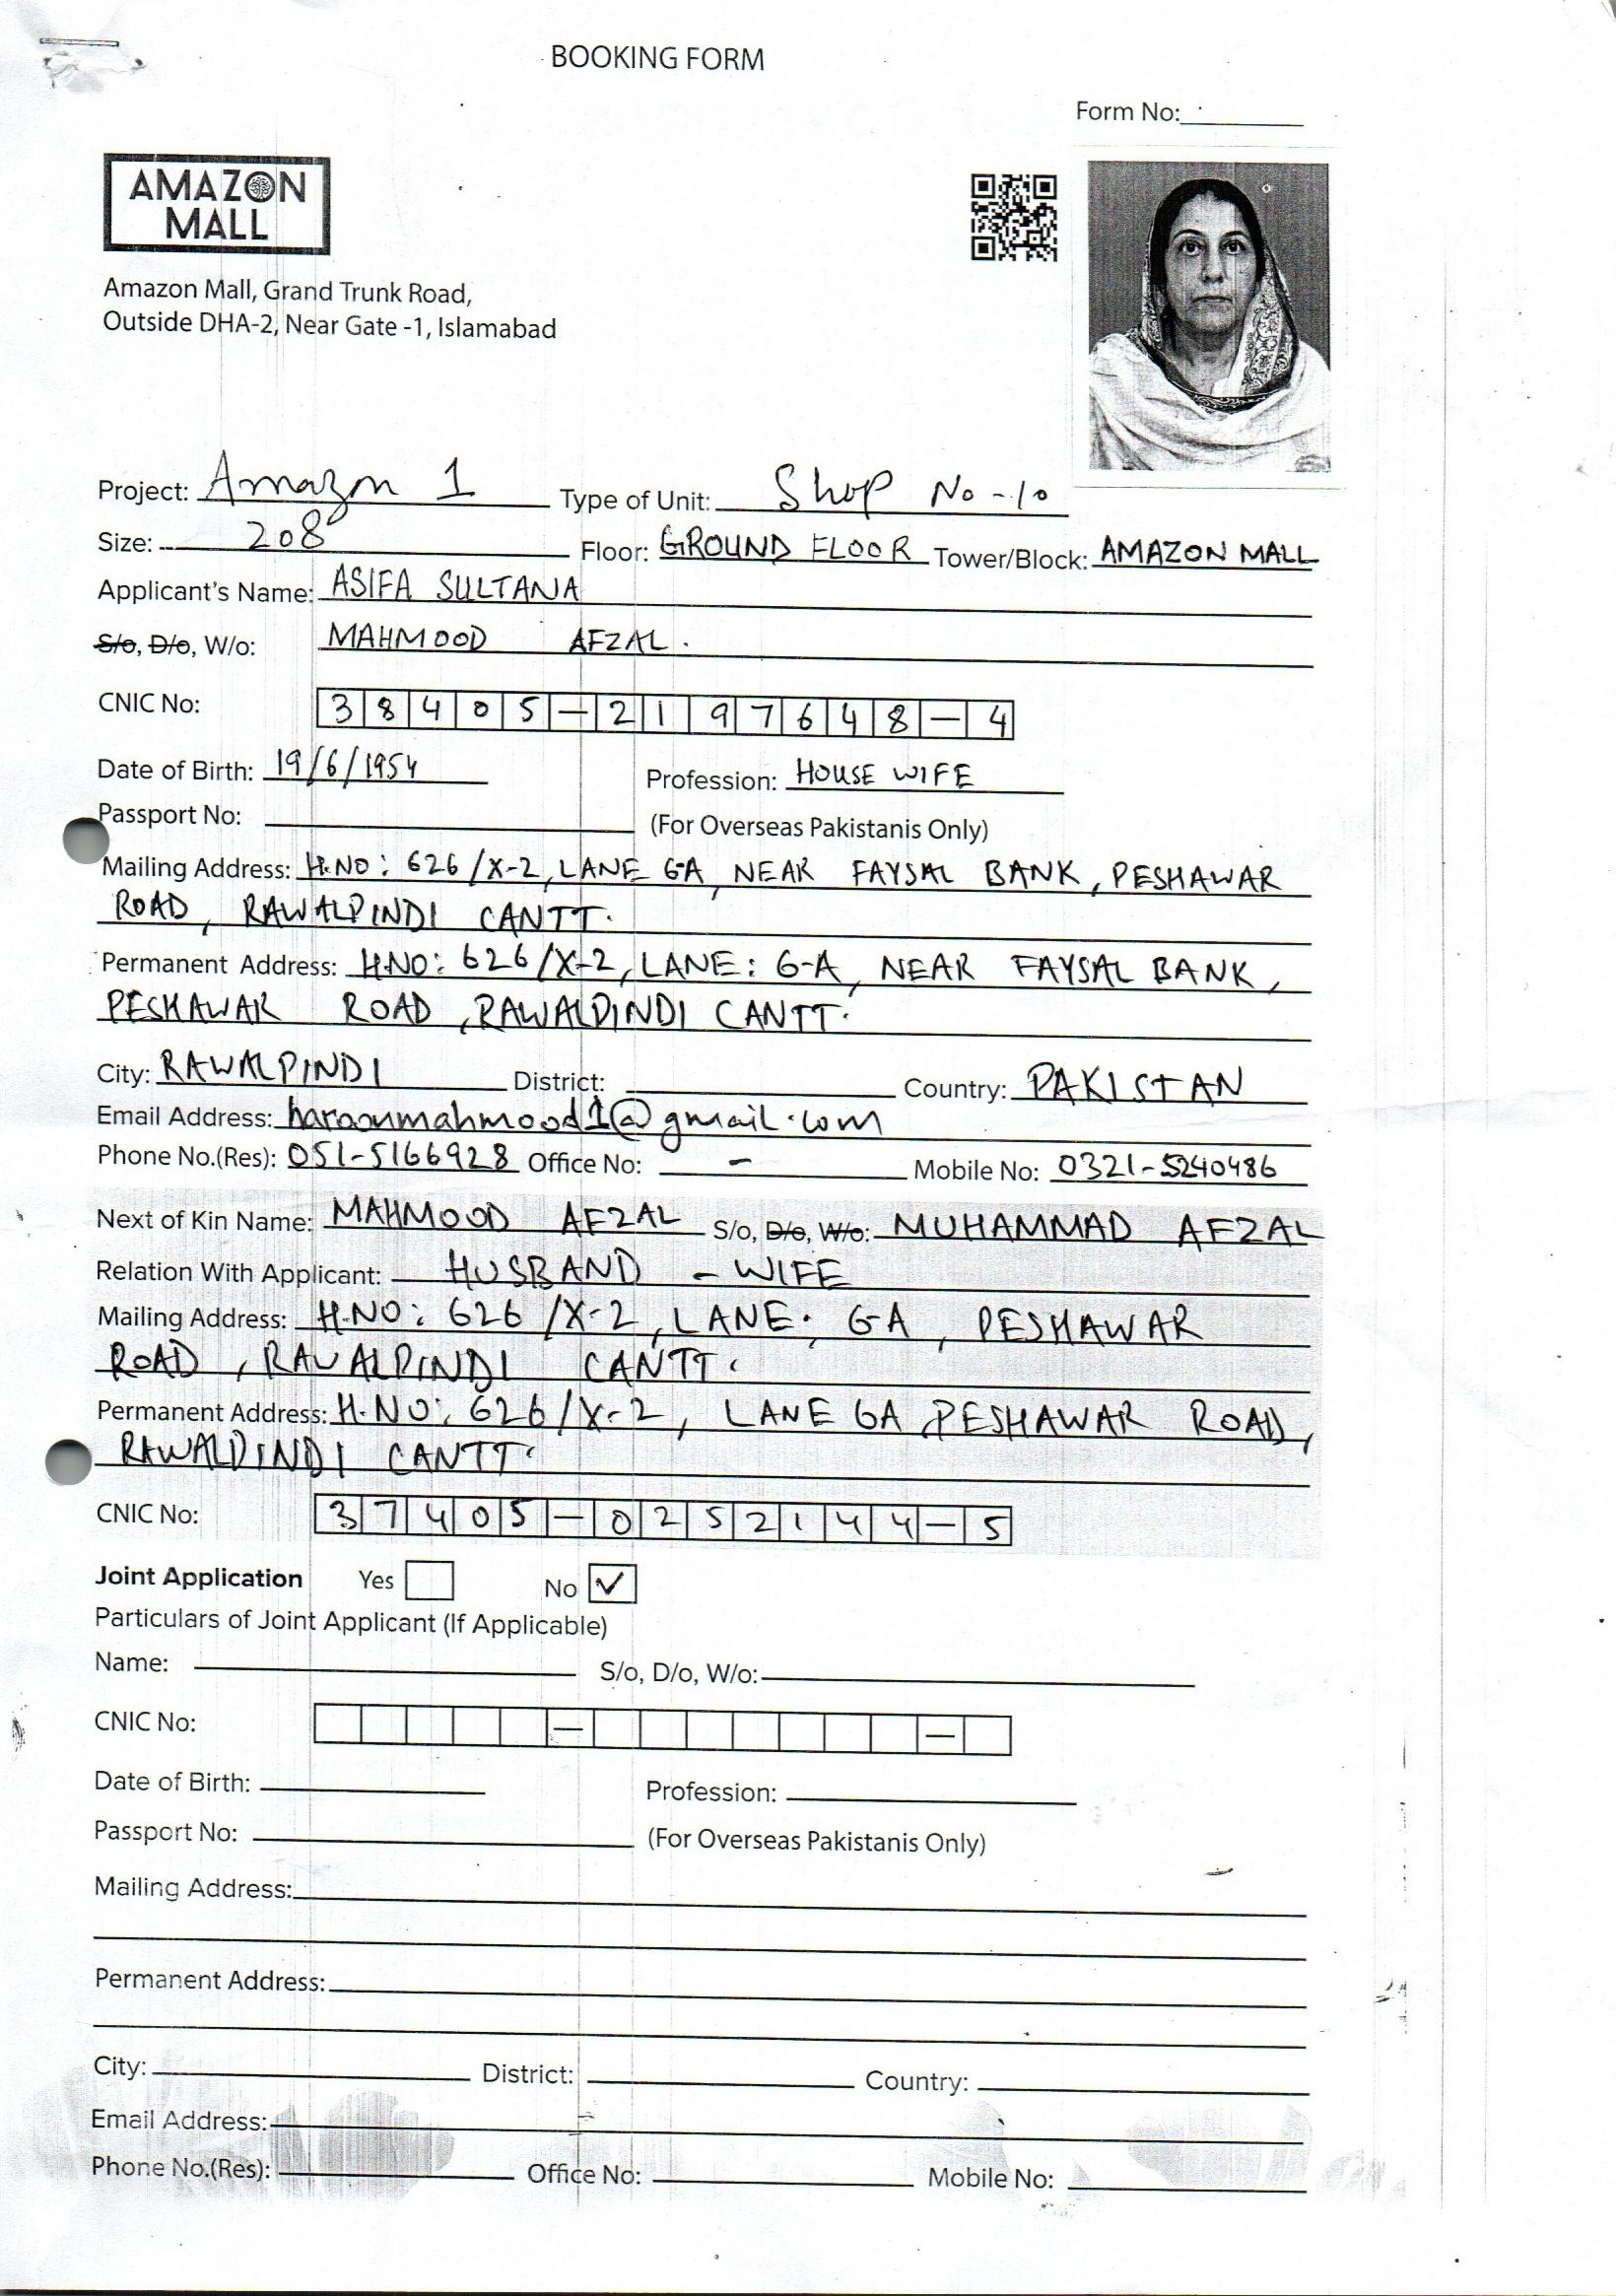 BOOKING FORM
Form No:
AMAZON
MALL
Amazon Mall, Grand Trunk Road,
Outside DHA-2, Near Gate -1, Islamabad
Project: Amazon 1 Type of Unit: Shop No - 10
Size: 208 Floor: GROUND FLOOR Tower/Block: AMAZON MALL
Applicant's Name: ASIFA SULTANA
S/o, D/o, W/o: MAHMOOD AFZAL.
CNIC No: 38405-2197648-4
Date of Birth: 19/6/1954 Profession: HOUSE WIFE
Passport No: (For Overseas Pakistanis Only)
Mailing Address: H.NO: 626/X-2, LANE 6-A, NEAR FAYSAL BANK, PESHAWAR
ROAD, RAWALPINDI CANTT.
Permanent Address: H.NO: 626/X-2, LANE: 6-A, NEAR FAYSAL BANK,
PESHAWAR ROAD, RAWALPINDI CANTT.
City: RAWALPINDI District: Country: PAKISTAN
Email Address: haroonmahmood1@gmail.com
Phone No.(Res): 051-5166928 Office No: - Mobile No: 0321-5240486
Next of Kin Name: MAHMOOD AFZAL S/o, D/o, W/o: MUHAMMAD AFZAL
Relation With Applicant: HUSBAND - WIFE
Mailing Address: H.NO: 626/X-2, LANE: 6-A, PESHAWAR
ROAD, RAWALPINDI CANTT.
Permanent Address: H.NO: 626/X-2, LANE 6A, PESHAWAR ROAD,
RAWALPINDI CANTT.
CNIC No: 37405-0252144-5
Joint Application Yes No ✓
Particulars of Joint Applicant (If Applicable)
Name: S/o, D/o, W/o:
CNIC No: - -
Date of Birth: Profession:
Passport No: (For Overseas Pakistanis Only)
Mailing Address:
Permanent Address:
City: District: Country:
Email Address:
Phone No.(Res): Office No: Mobile No: